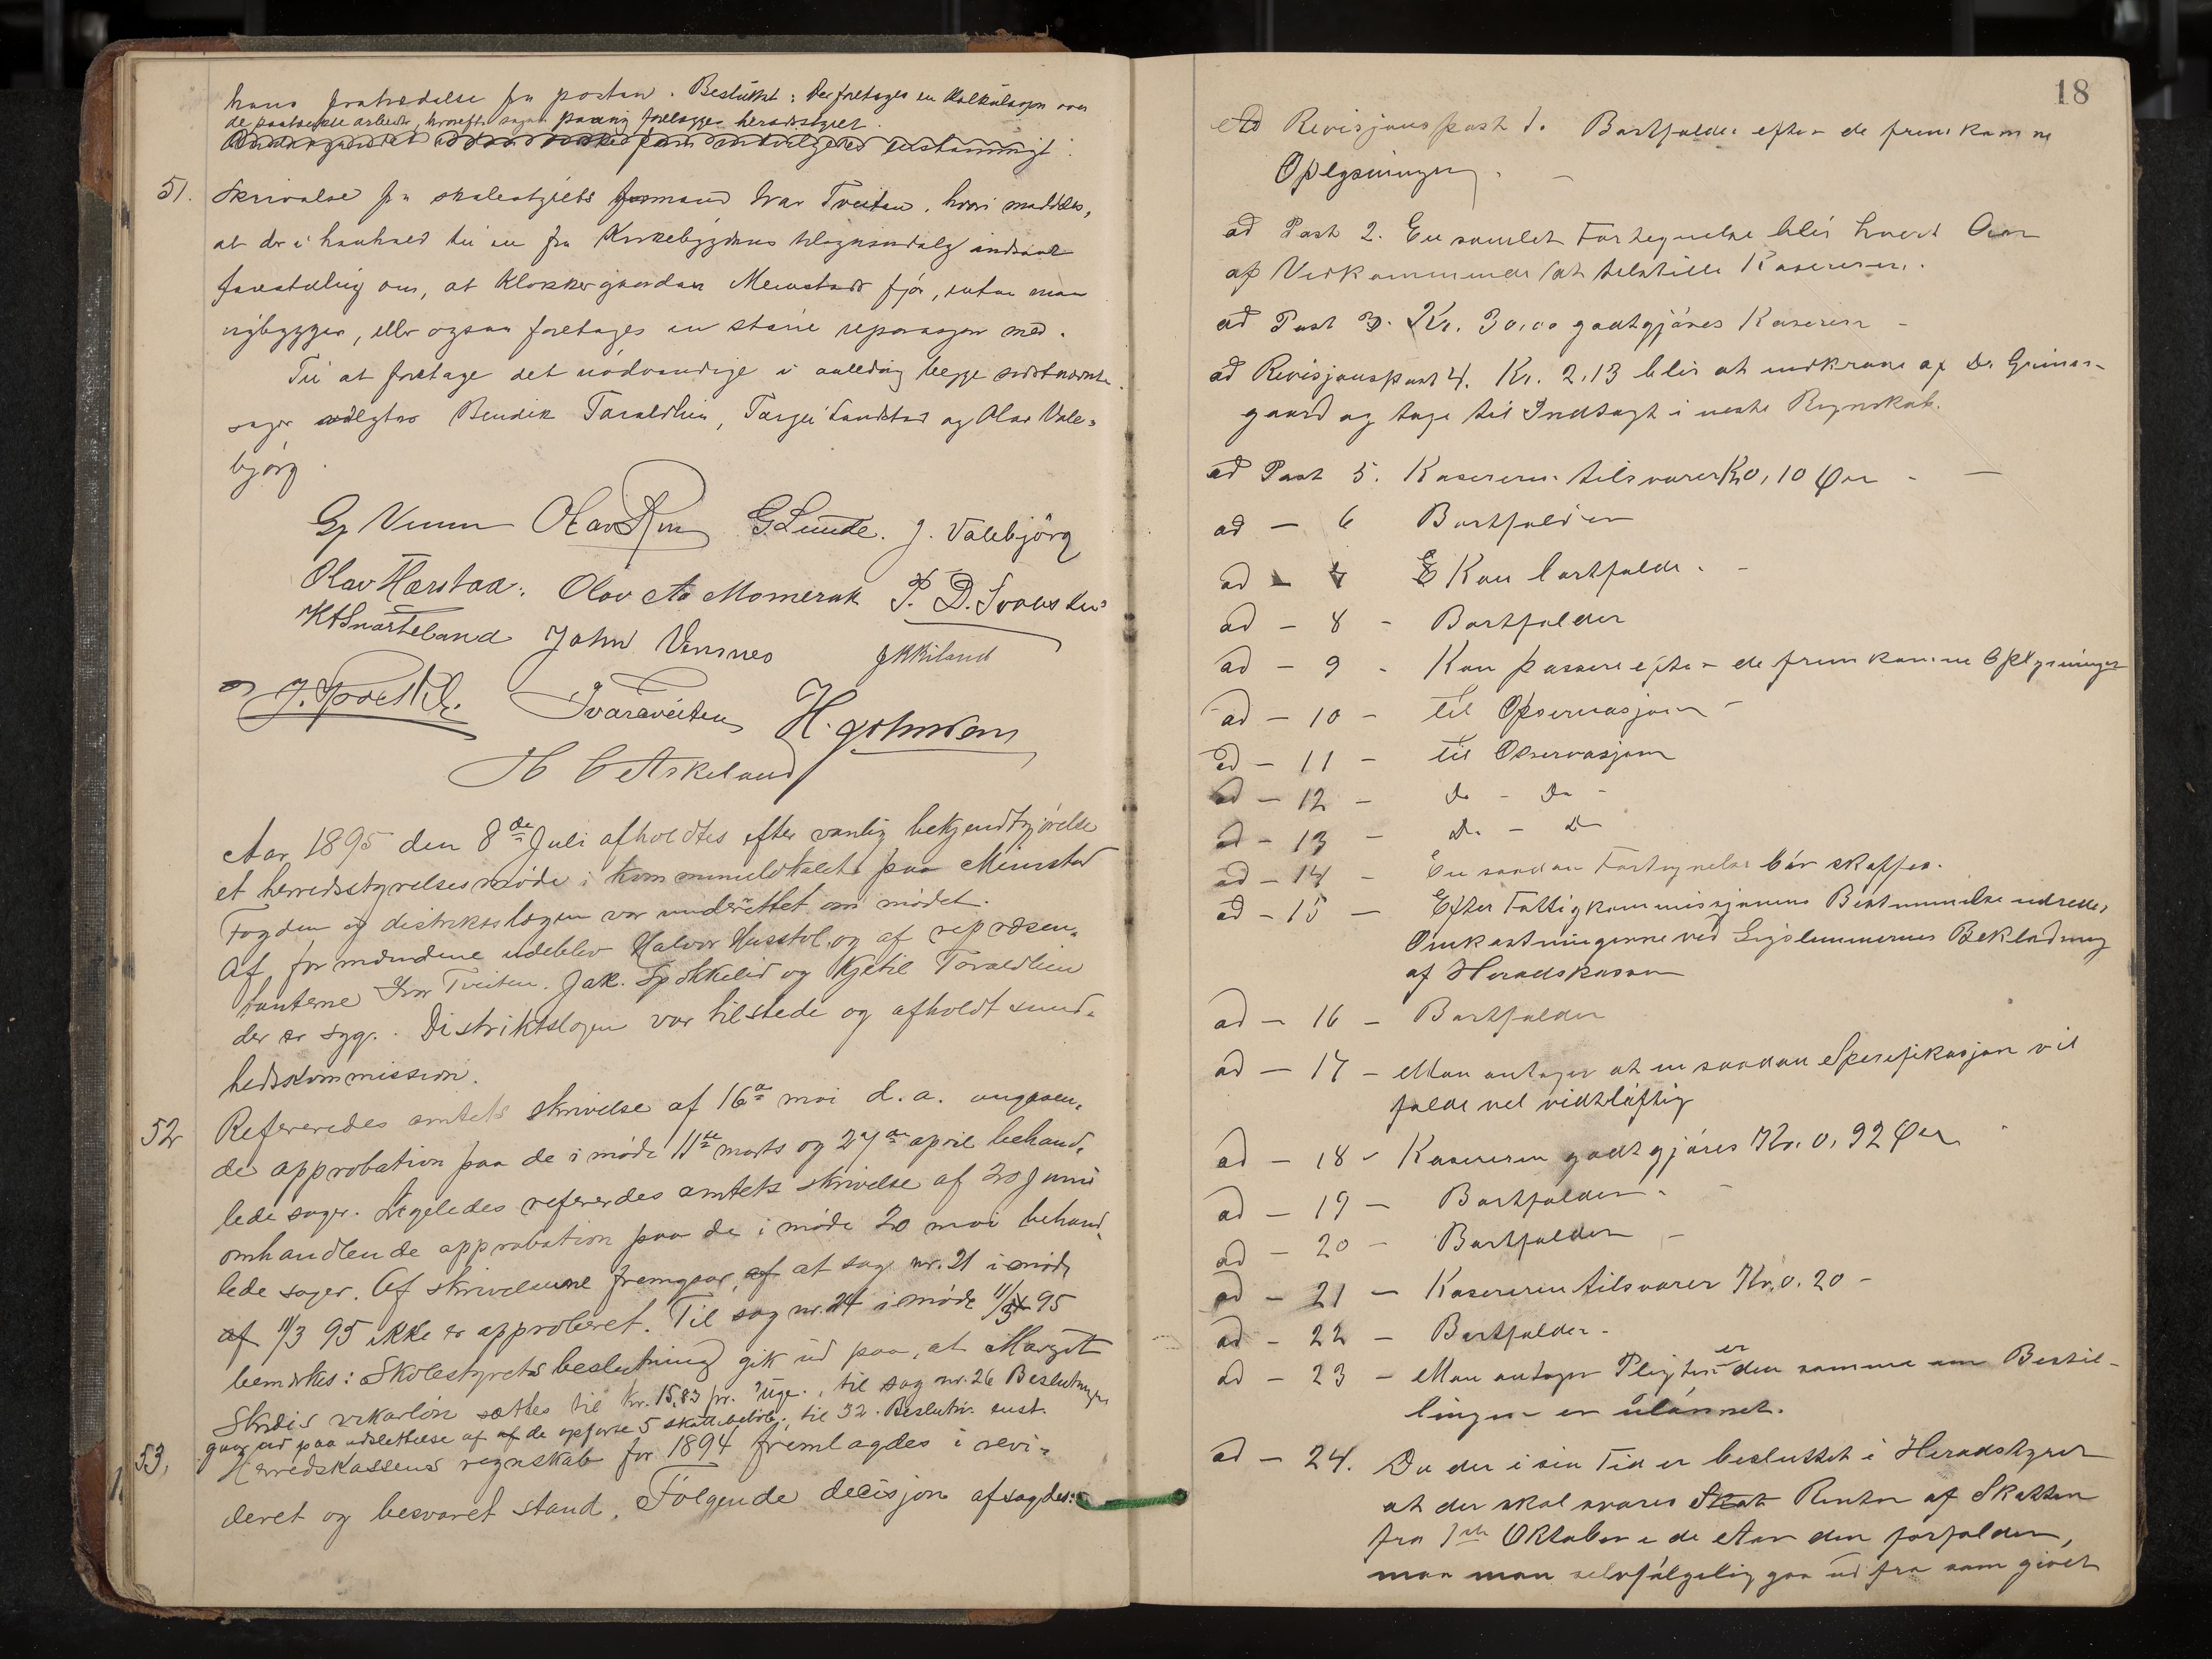 hans fratrædelse fra posten. Besluttet: Der foretages en kalkulasjon over
de paatænkte arbeider, hvorefter sagen paany forelægges herredsstyret.
enstemmigt.
51. Skrivelse fra skolestyrets formand Ivar Tveiten, hvori meddeles,
at der i henhold til en fra Kirkebygdens tilsynsudvalg indsendt
forestilling om, at Klokkergaarden Meinstad fjøs, enten maa
nybygges, eller ogsaa foretages en større reparasjon med.
Til at foretage det nødvendige i anledning begge sidstnævnte
sager valgtes Bendik Taraldlien, Tarjei Sandstad og Olav Vale-
bjørg.
Gp Venum Olav Rui G. Lunde. J. Valebjörg
Olav Hærstad. Olav Aa Momrak P. D. Svalestu
K H Snarteland John Vensnes J K Kiland
J. Spockeli. Ivar Tveiten H. Johnsen
H C Askeland
Aar 1895 den 8de Juli afholdtes efter vanlig bekjendtgjørelse
et herredsstyrelsesmøde i kommunelokalet paa Meinstad
Fogden og distriktslægen var underrettet om mødet.
Af formændene udeblev Halvor Husstøl og af repræsen-
tanterne Ivar Tveiten. Jak. Spokkelid og Kjetil Taraldlien
der er syg. Distriktslægen var tilstede og afholdt sund-
hedskommission.
52 Refereredes amtets skrivelse af 16de mai d. a. angaaen-
de approbation paa de i møde 11te marts og 27de april behand-
lede sager. Ligeledes refereredes amtets skrivelse af 20 Juni
omhandlende approbation paa de i møde 20 mai behand-
lede sager. Af skrivelserne fremgaar, af at sag nr. 21 i møde
af 11/3 95 ikke er approberet. Til sag nr. 24 i møde 11/3 95
bemærkes: Skolestyrets beslutning gik ud paa, at Margit
Skreis vikarløn sættes til kr. 15,83 pr. uge., til sag nr. 26 Beslutningen
gaar ud paa udslettelse af af de opførte 5 skattebeløb; til 32. Beslutn. enst.
53, Herredskassens regnskab for 1894 fremlagdes i revi-
deret og besvaret stand. Følgende decisjon afsagdes:
18
ad Revisjonspost 1. Bortfalder efter de fremkomne
Oplysninger. -
ad Post 2. En samlet Fortegnelse blir hvert Aar
af Vedkommende at tilstille Kasereren.
ad Post 3. Kr. 30,00 godtgjøres Kasereren -
ad Revisjonspost 4. Kr. 2,13 blir at indkræve af Dr Grimas-
gaard og tage til Indtægt i neste Regnskab.
ad Post 5. Kasereren tilsvarer Kr 0,10 Øre - -
ad - 6 Bortfalder
ad - 7 Kan bortfalde. -
ad - 8 - Bortfalder
ad - 9 - Kan passere efter de fremkomne Oplysninger
ad - 10 - til Observasjon -
ad - 11 - til Observasjon
ad - 12 - Do - Do -
ad - 13 - Do - Do
ad - 14 - En saadan Fortegnelse bør skaffes.
ad - 15 - Efter Fattigkommissjonens Bestemmelse udredes
Omkostningerne ved Lægslemmernes Beklædning
af Heradskassen
ad - 16 - Bortfalder
ad - 17 - Man antager at en saadan Spesifikasjon vil
falde vel vidtløftig
ad - 18 - Kasereren godtgjøres Kr. 0,92 Øre.
ad - 19 - Bortfalder. -
ad - 20 - Bortfalder -
ad - 21 - Kasereren tilsvarer Kr. 0.20 -
ad - 22 - Bortfalder -
ad - 23 - Man antager Pligten er den samme om Bestil-
lingen er ulønnet.
ad - 24. Da der i sin Tid er besluttet i Heradstyret
at der skal svares Skat Renter af Skatten
fra 1ste Oktober i de Aar den forfalder,
maa man selvfølgelig gaa ud fra som givet